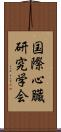 国際心臓
研究学会